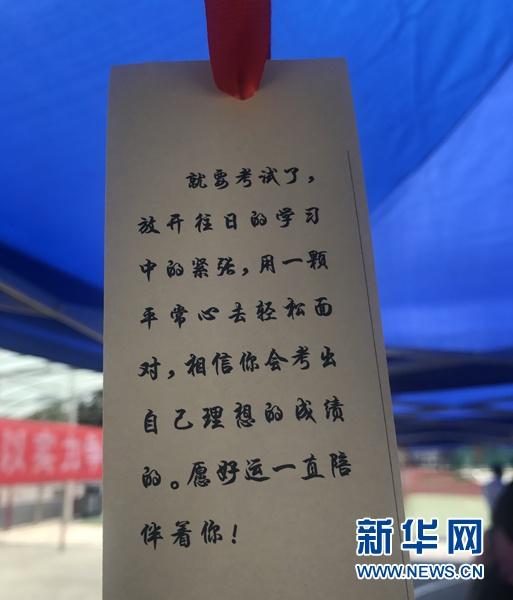 就要考试了，
放开往日的学习
中的紧张，用一颗
平常心去轻松面
对，相信你会考出
自己理想的成绩
的。愿好运一直陪
伴着你！
以实力争
新华网
WWW.NEWS.CN